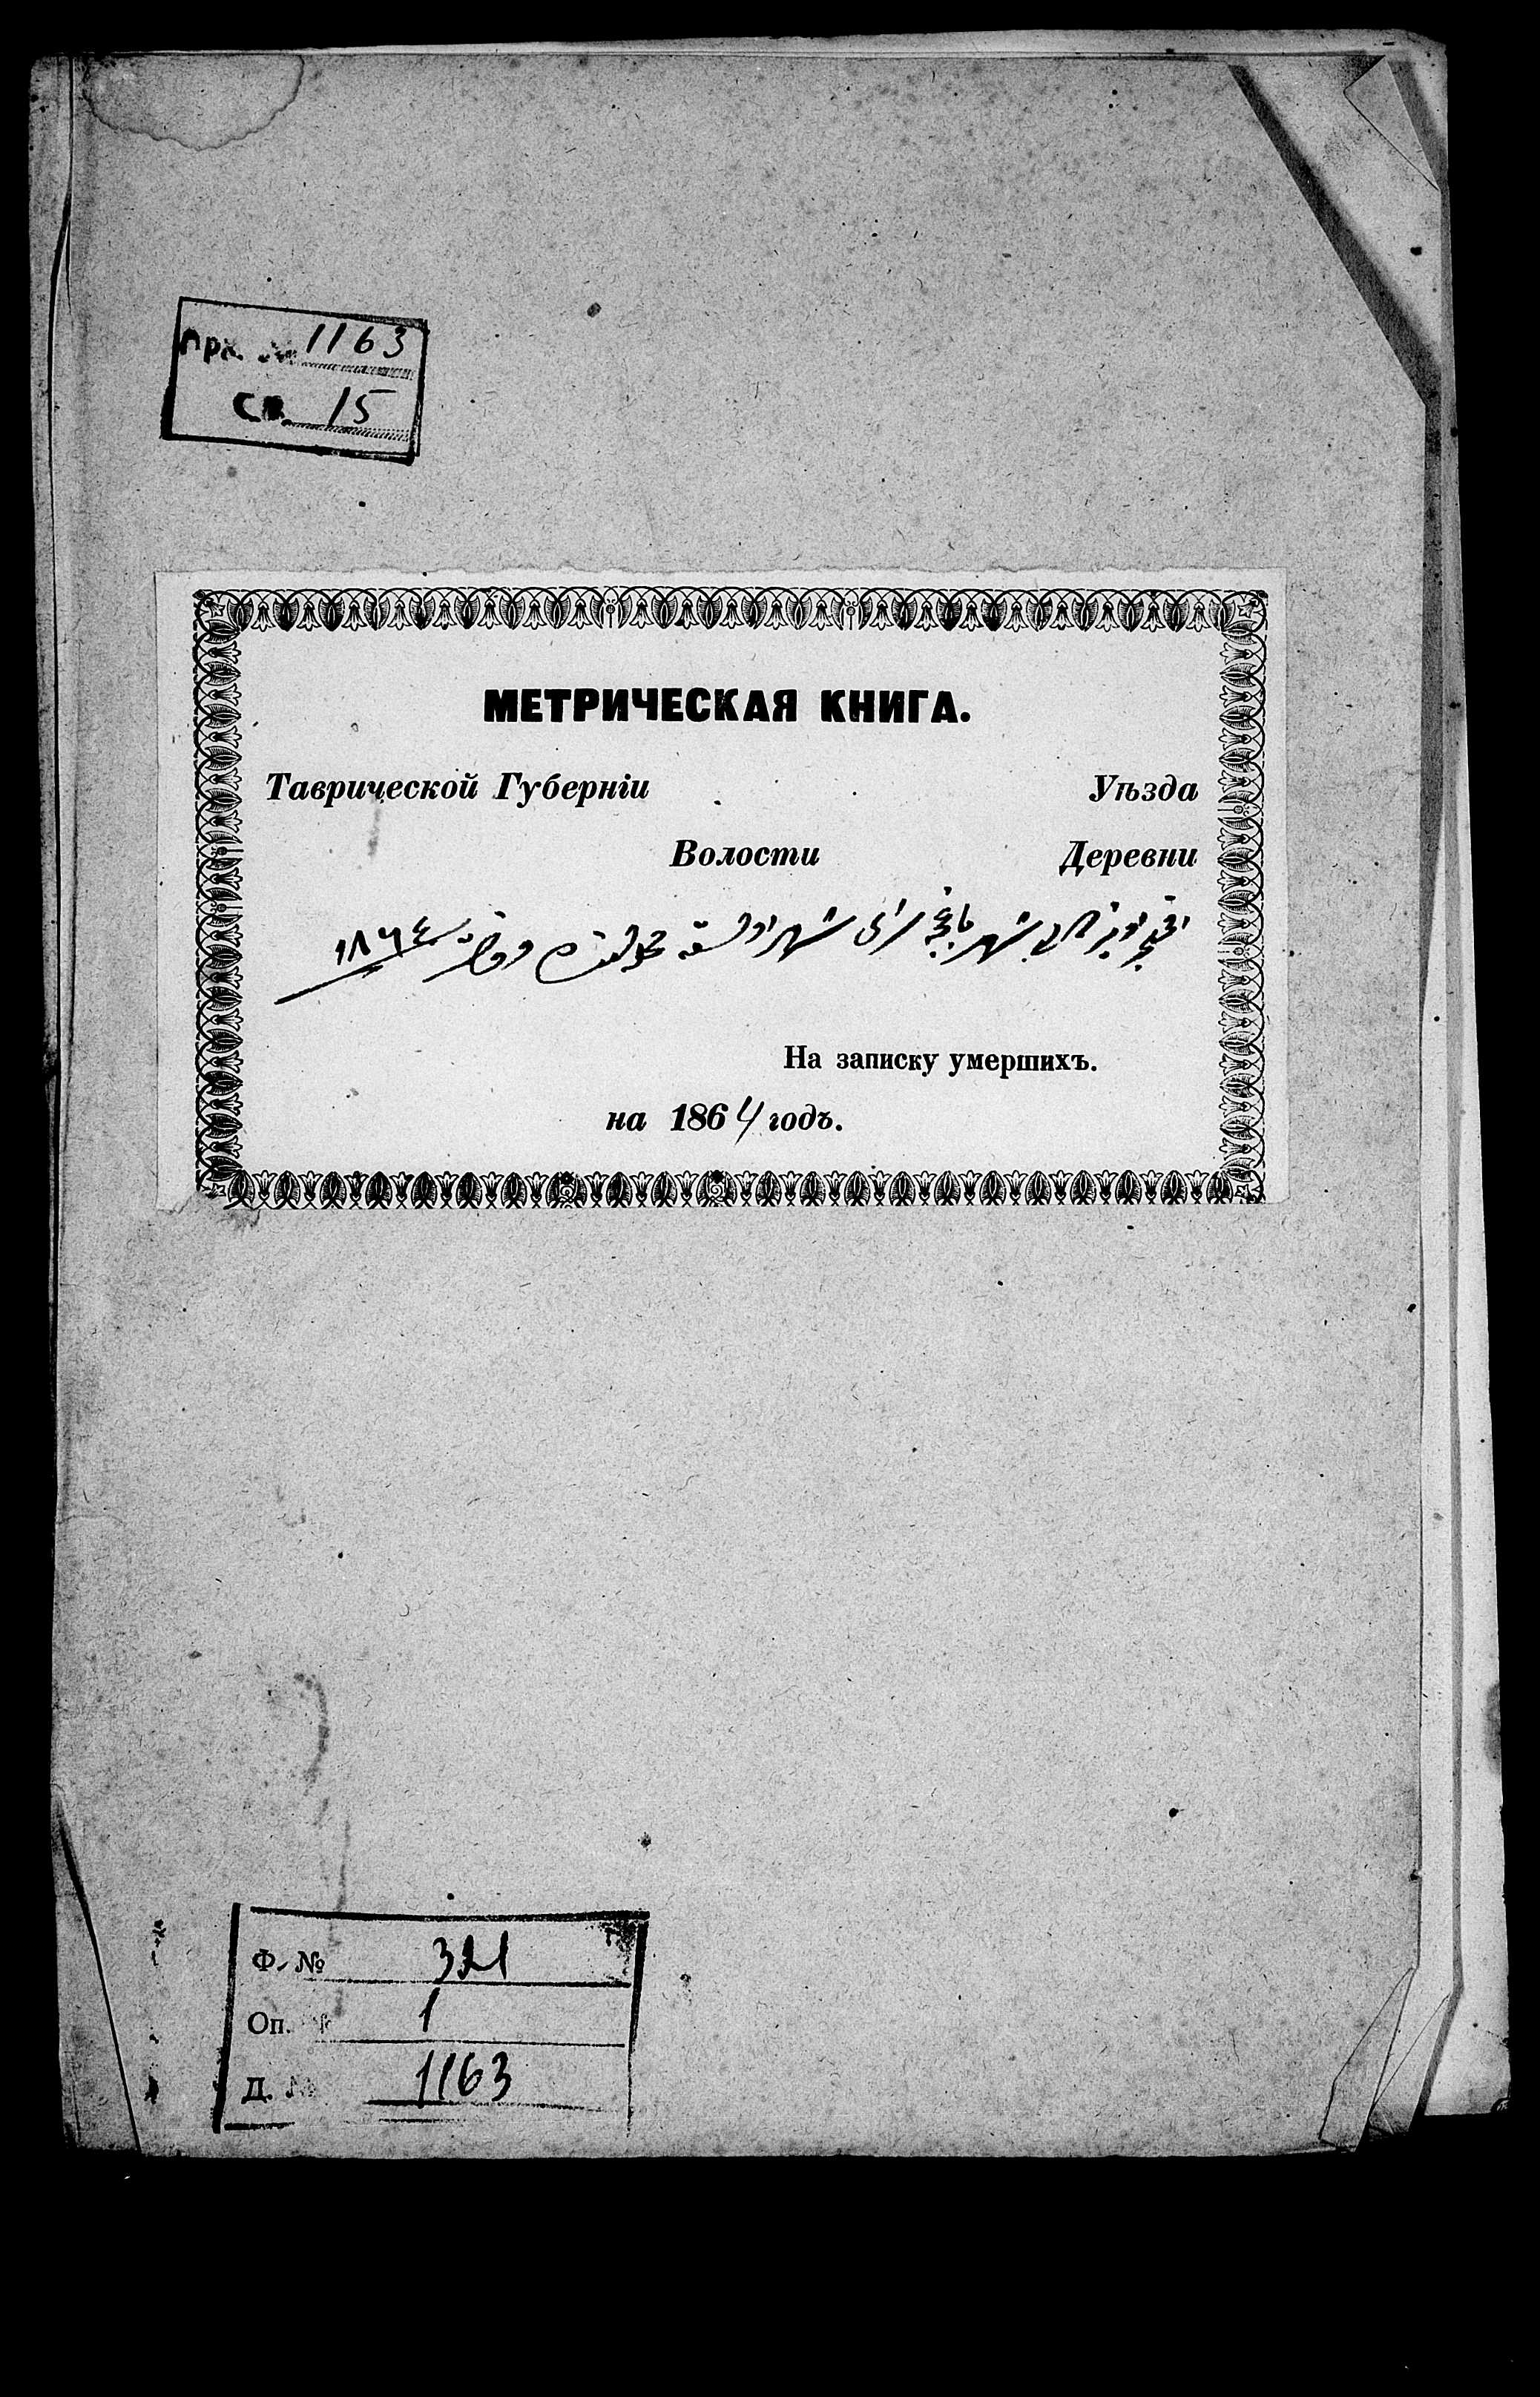 Арх. № 1163
Св. 15
МЕТРИЧЕСКАЯ КНИГА.
Таврической Губерніи Уѣзда
Волости Деревни
شهر باغچه سراى شهر سنه ١٨٦٤
На записку умершихъ.
на 1864 годъ.
Ф. № 321
Оп. № 1
Д. № 1163